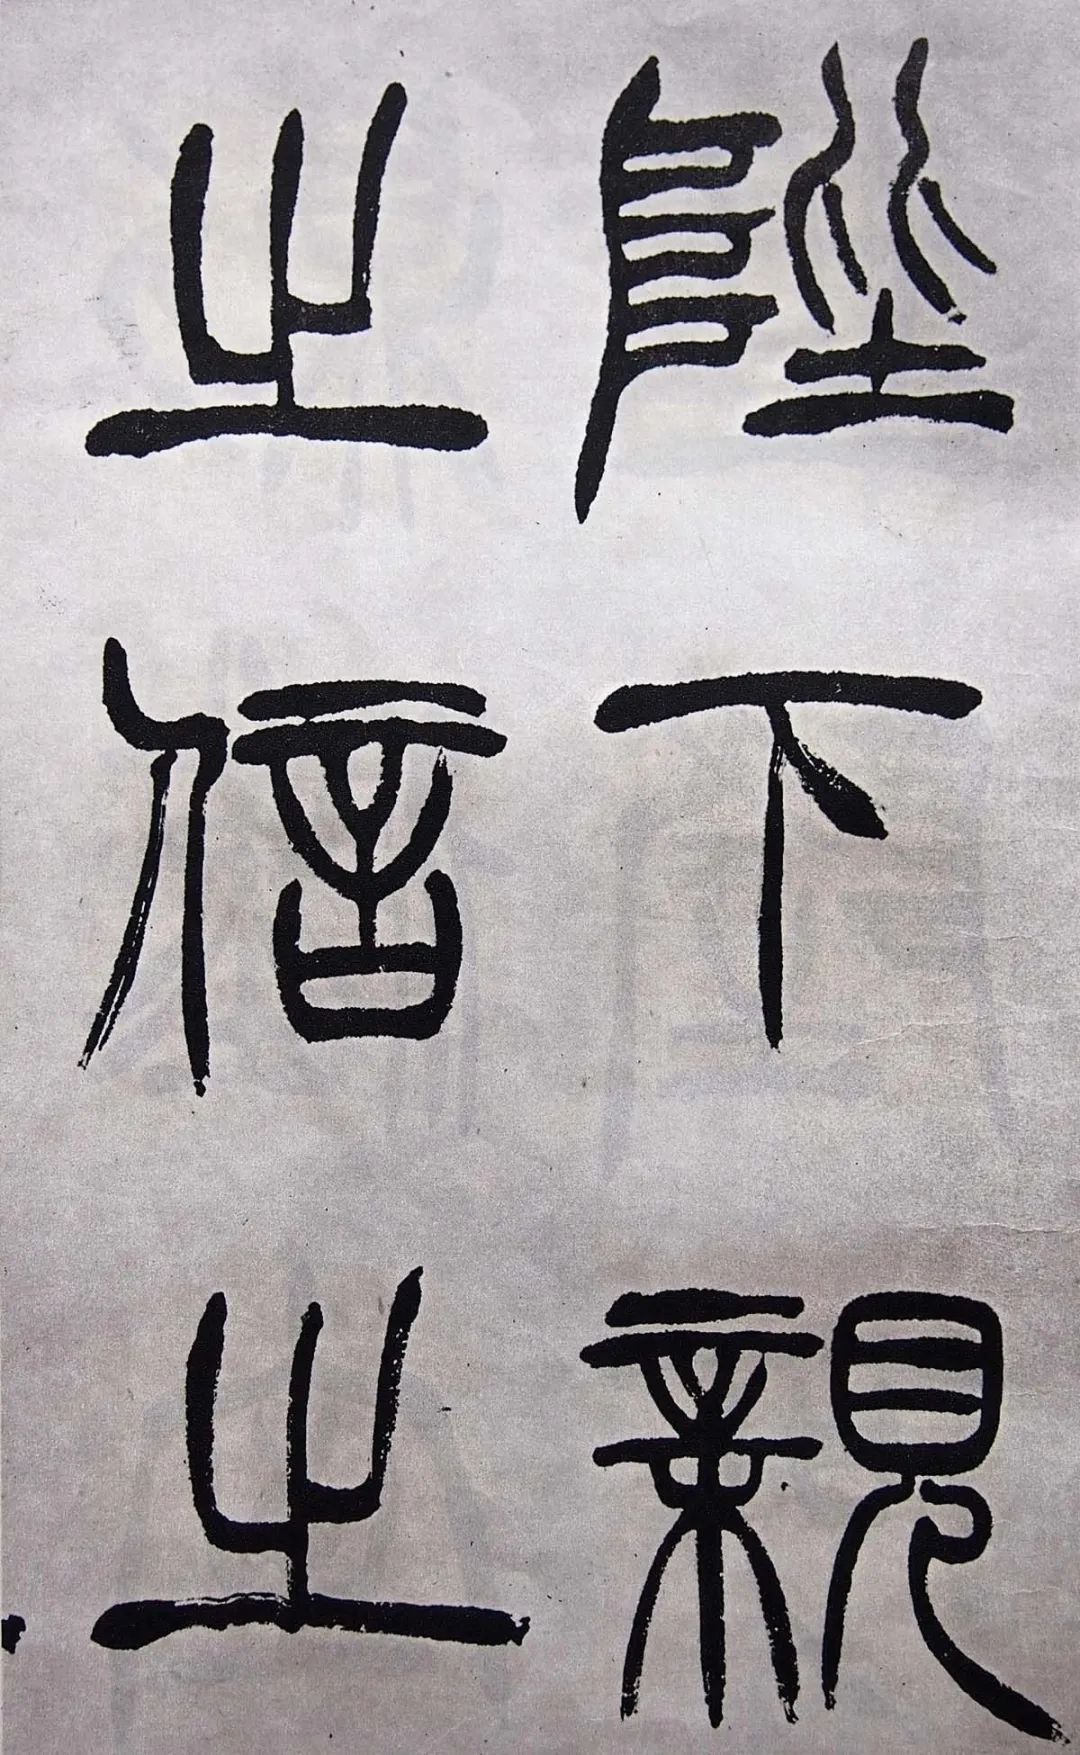 陛下親
之信之